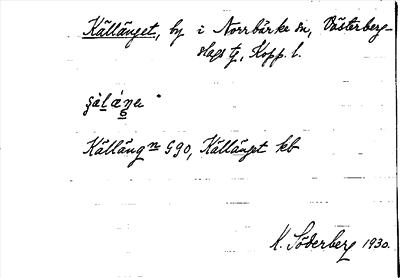 Källänget, by i Norrbärke sn, Västerberg-
slags tg, Kopp. l.
Källäng n G90, Källänget kb
K. Söderberg 1930.